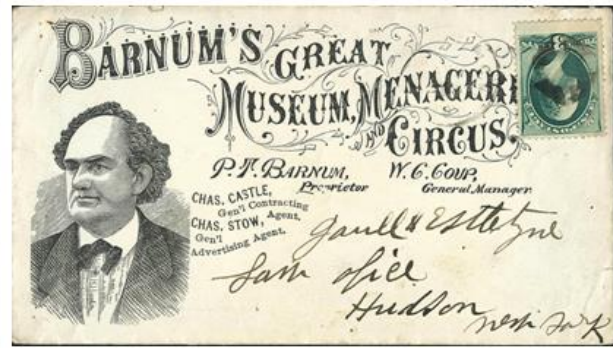 BARNUM'S GREAT
MUSEUM, MENAGERI
AND CIRCUS,
P. T. BARNUM, Proprietor
W. C. COUP, General Manager
CHAS. CASTLE,
Gen'l Contracting
Agent,
CHAS. STOW,
Gen'l
Advertising Agent.
Law office
Hudson
New York